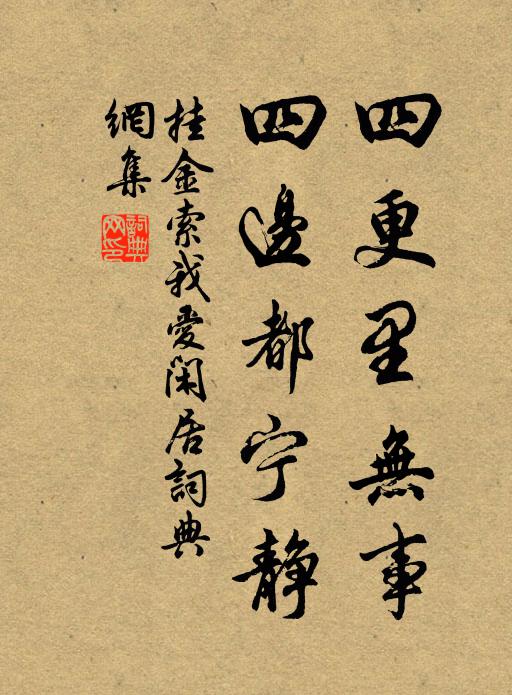 四更里無事
四邊都宁靜
挂金索我愛闲居詞典
網集
詞典
网印